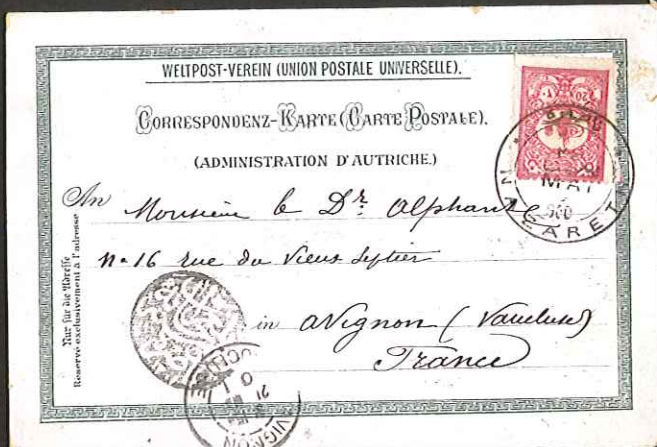 WELTPOST-VEREIN (UNION POSTALE UNIVERSELLE).
CORRESPONDENZ-KARTE (CARTE POSTALE).
(ADMINISTRATION D'AUTRICHE.)
An Monsieur le Dr. Alphant
No 16 rue du Vieux Septier
in Avignon (Vaucluse)
France
Nur für die Adresse
Reserve exclusivement à l'adresse
MAI
NAZARET
AVIGNON